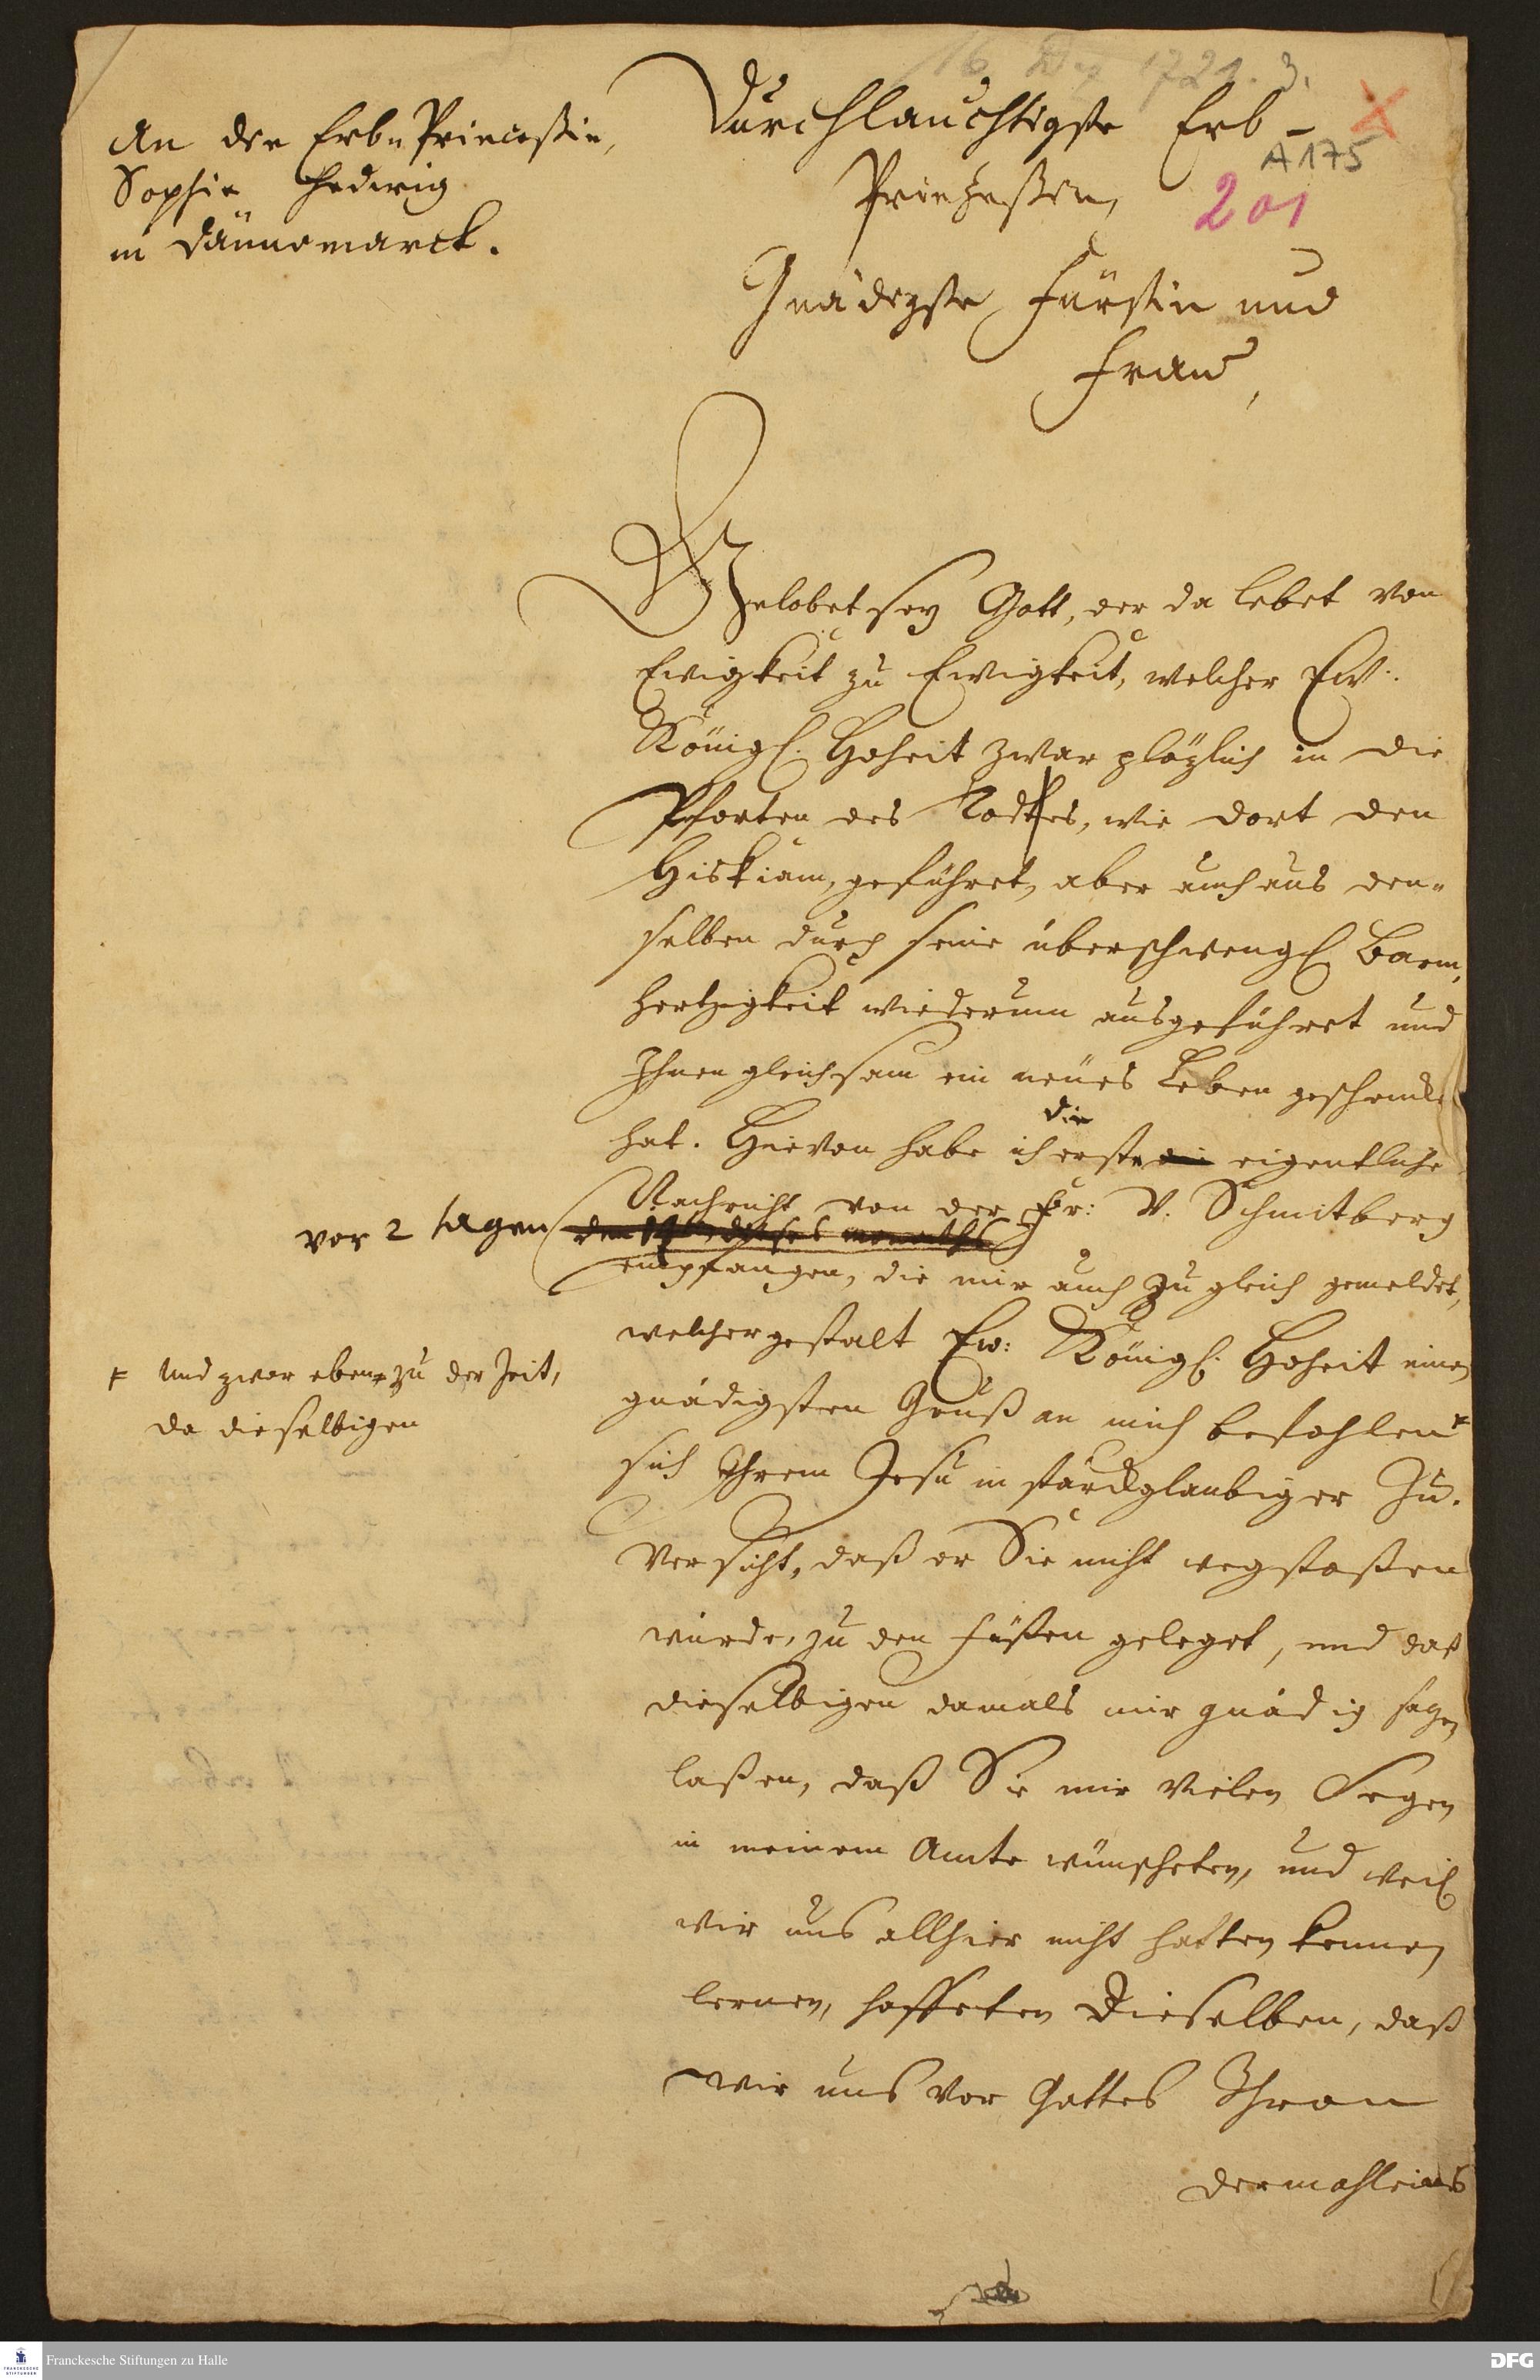 16 Dez 1721. 3.
An der Erb-Princeßin,
Sophie Hedwig
in Dännemarck.
Durchlauchtigste Erb-
A 175
Prinzeßin,
201
Gnädigste Fürstin und
Frau,
Gelobet sey Gott, der da lebet von
Ewigkeit zu Ewigkeit, welcher Ew:
Königl. Hoheit zwar plözlich in die
Pforten des Todtes, wie dort den
Hiskiam, geführet, aber auch aus den-
selben durch seine überschwengl. Barm-
hertzigkeit wiederum ausgeführet und
Ihnen gleichsam ein neües Leben geschenckt
die
hat. Hievon habe ich erste eigentliche
Nachricht von der Fr: v. Schmitberg
vor 2 tagen den dieses monaths
empfangen, die mir auch zu gleich gemeldet,
welchergestalt Ew: Königl. Hoheit einen
gnädigsten Gruß an mich befohlen
und zwar eben zu der Zeit,
da dieselbigen
sich Ihrem Jesu in starckglaubiger Zu-
versicht, daß er Sie nicht wegstoßen
würde, zu den Füßen geleget, und daß
dieselbigen damals mir gnädig sagen
laßen, daß Sie mir vielen Segen
in meinem Amte wünscheten, und weil
wir uns allhier nicht hatten kennen
lernen, hoffeten Dieselben, daß
wir uns vor Gottes Thron
dermahleins
Franckesche Stiftungen zu Halle
DFG